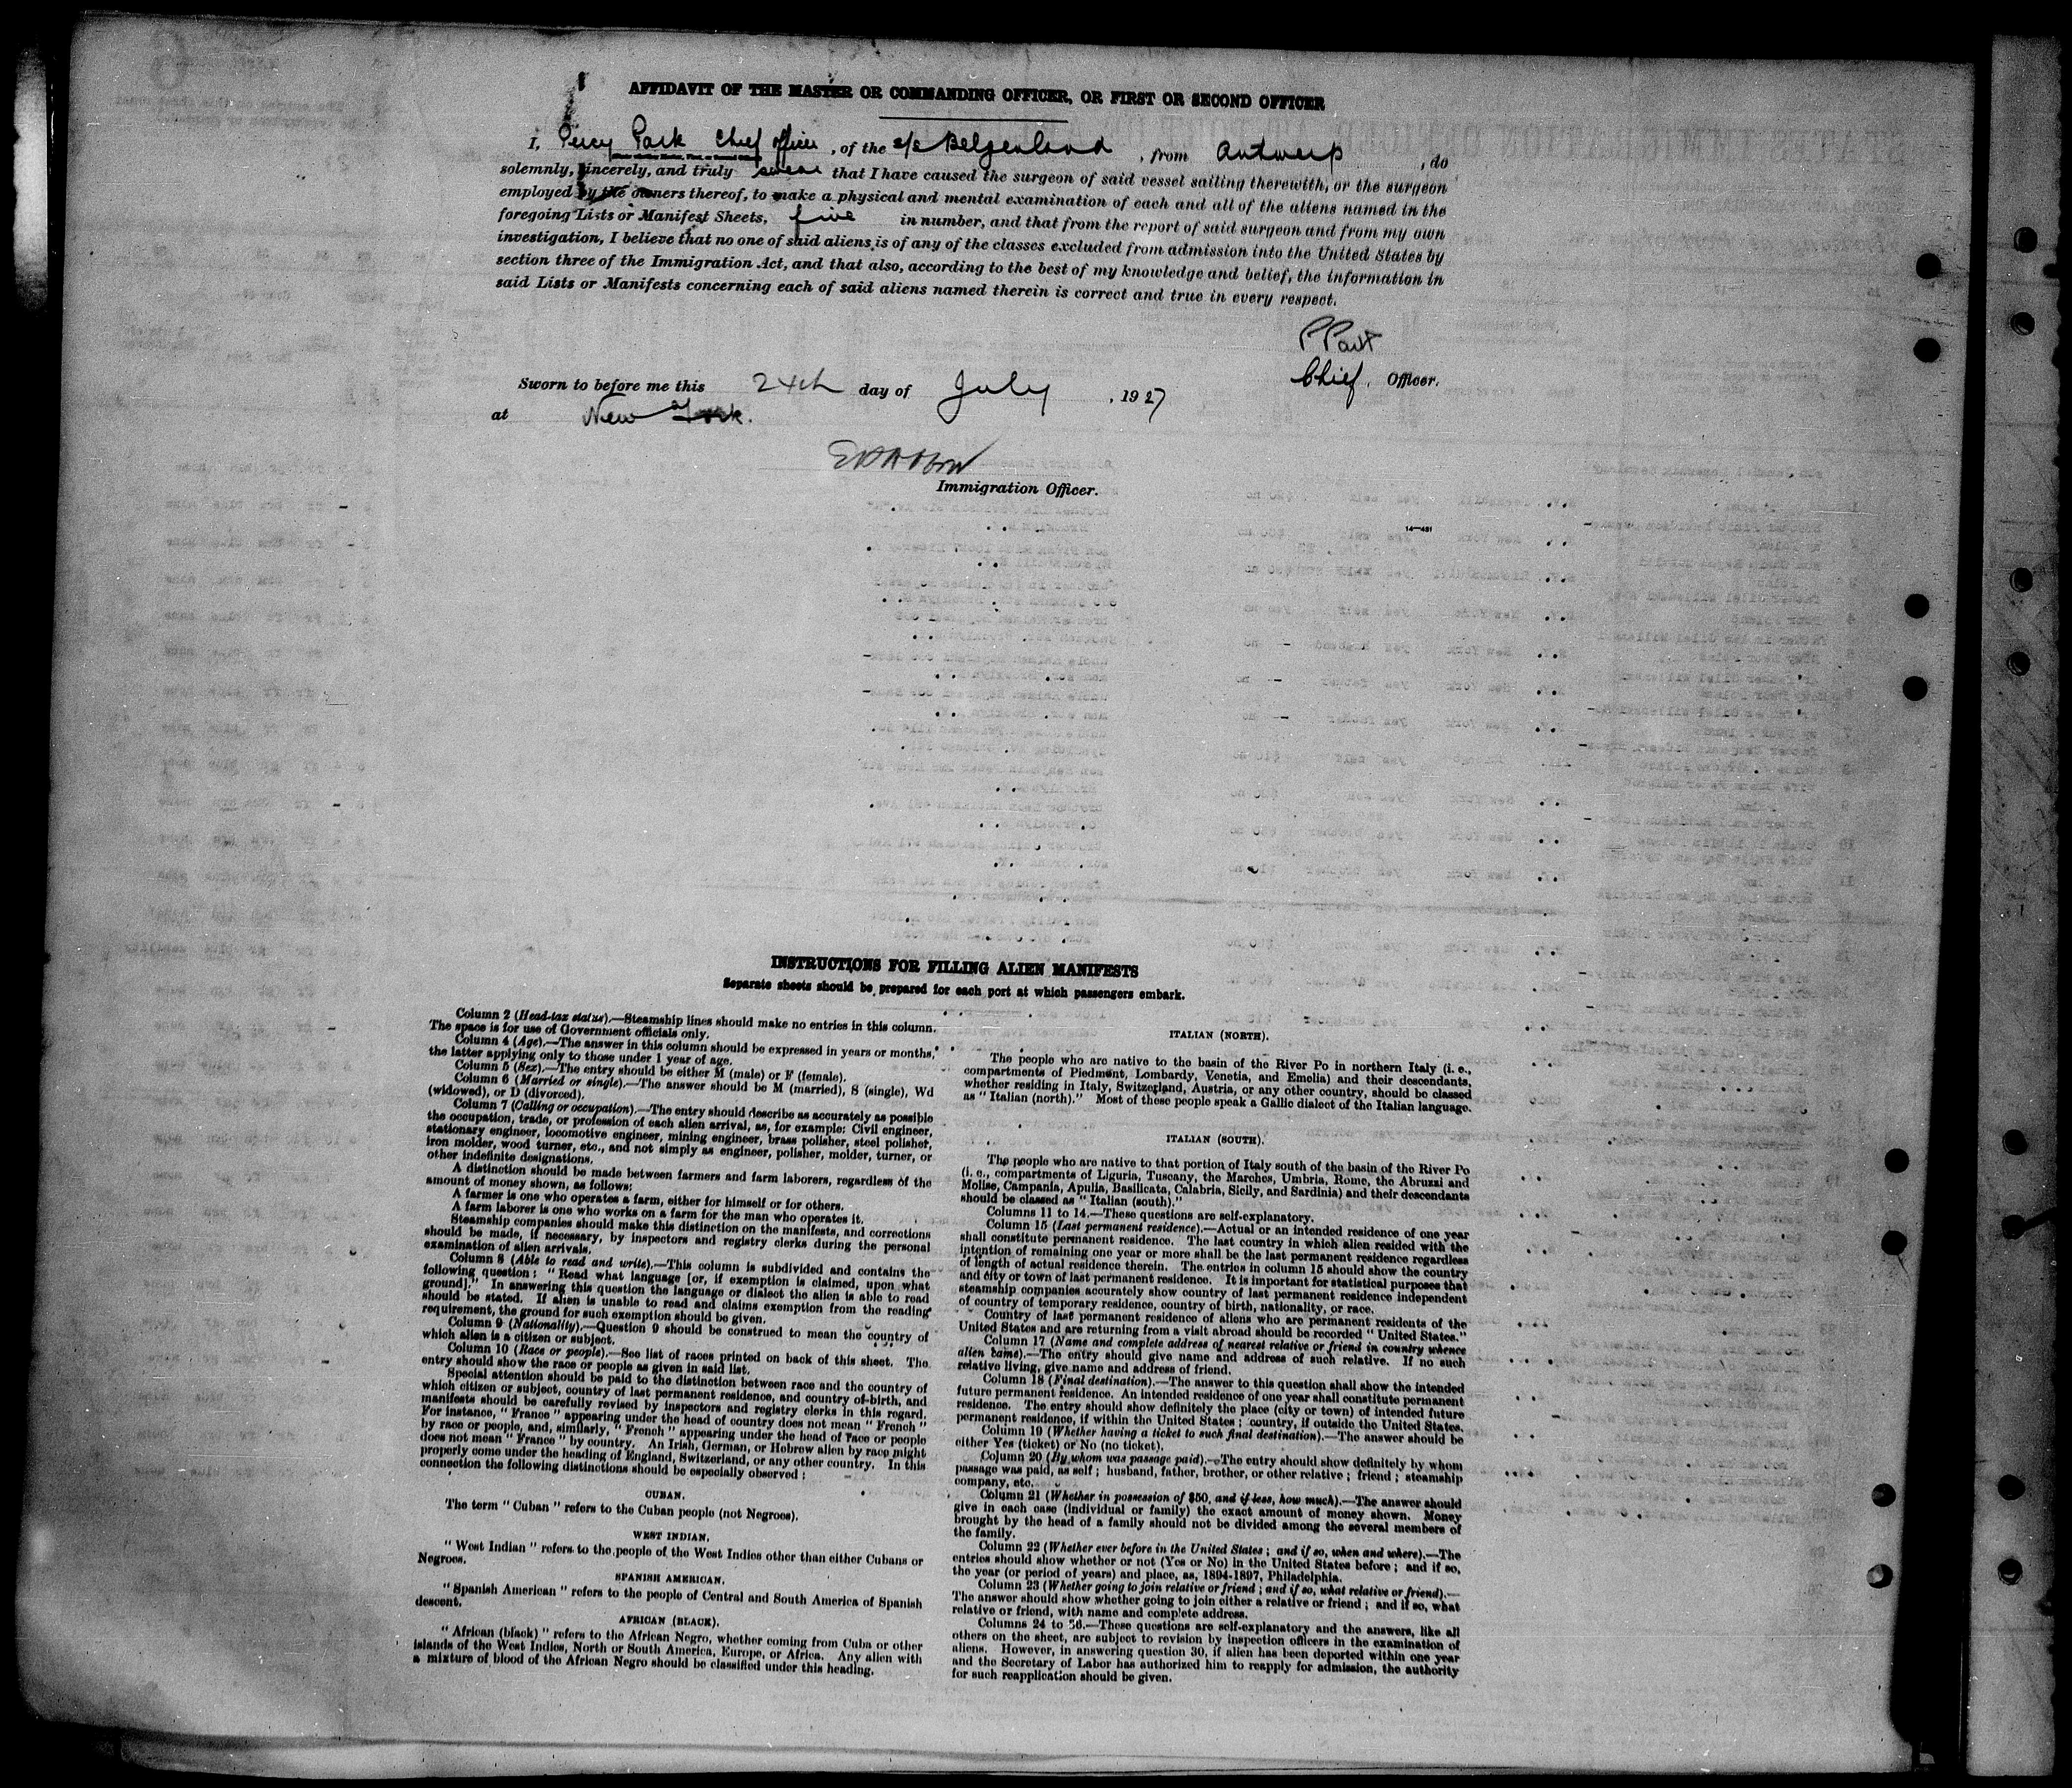 AFFIDAVIT OF THE MASTER OR COMMANDING OFFICER, OR FIRST OR SECOND OFFICER
I, Percy Park Chief officer, of the s/s Belgenland, from Antwerp, do
solemnly, sincerely, and truly swear that I have caused the surgeon of said vessel sailing therewith, or the surgeon
employed by the owners thereof, to make a physical and mental examination of each and all of the aliens named in the
foregoing Lists or Manifest Sheets, five in number, and that from the report of said surgeon and from my own
investigation, I believe that no one of said aliens is of any of the classes excluded from admission into the United States by
section three of the Immigration Act, and that also, according to the best of my knowledge and belief, the information in
said Lists or Manifests concerning each of said aliens named therein is correct and true in every respect.
P Park
Chief. Officer.
Sworn to before me this 24th day of July, 1927
at New York.
Immigration Officer.
14—481
INSTRUCTIONS FOR FILLING ALIEN MANIFESTS
Separate sheets should be prepared for each port at which passengers embark.
Column 2 (Head-tax status).—Steamship lines should make no entries in this column.
The space is for use of Government officials only.
Column 4 (Age).—The answer in this column should be expressed in years or months,
the latter applying only to those under 1 year of age.
Column 5 (Sex).—The entry should be either M (male) or F (female).
Column 6 (Married or single).—The answer should be M (married), S (single), Wd
(widowed), or D (divorced).
Column 7 (Calling or occupation).—The entry should describe as accurately as possible
the occupation, trade, or profession of each alien arrival, as, for example: Civil engineer,
stationary engineer, locomotive engineer, mining engineer, brass polisher, steel polisher,
iron molder, wood turner, etc., and not simply as engineer, polisher, molder, turner, or
other indefinite designations.
A distinction should be made between farmers and farm laborers, regardless of the
amount of money shown, as follows:
A farmer is one who operates a farm, either for himself or for others.
A farm laborer is one who works on a farm for the man who operates it.
Steamship companies should make this distinction on the manifests, and corrections
should be made, if necessary, by inspectors and registry clerks during the personal
examination of alien arrivals.
Column 8 (Able to read and write).—This column is subdivided and contains the
following question: "Read what language [or, if exemption is claimed, upon what
ground]." In answering this question the language or dialect the alien is able to read
should be stated. If alien is unable to read and claims exemption from the reading
requirement, the ground for such exemption should be given.
Column 9 (Nationality).—Question 9 should be construed to mean the country of
which alien is a citizen or subject.
Column 10 (Race or people).—See list of races printed on back of this sheet. The
entry should show the race or people as given in said list.
Special attention should be paid to the distinction between race and the country of
which citizen or subject, country of last permanent residence, and country of birth, and
manifests should be carefully revised by inspectors and registry clerks in this regard.
For instance, "France" appearing under the head of country does not mean "French"
by race or people, and, similarly, "French" appearing under the head of race or people
does not mean "France" by country. An Irish, German, or Hebrew alien by race might
properly come under the heading of England, Switzerland, or any other country. In this
connection the following distinctions should be especially observed:
CUBAN.
The term "Cuban" refers to the Cuban people (not Negroes).
WEST INDIAN.
"West Indian" refers to the people of the West Indies other than either Cubans or
Negroes.
SPANISH AMERICAN.
"Spanish American" refers to the people of Central and South America of Spanish
descent.
AFRICAN (BLACK).
"African (black)" refers to the African Negro, whether coming from Cuba or other
islands of the West Indies, North or South America, Europe, or Africa. Any alien with
a mixture of blood of the African Negro should be classified under this heading.
ITALIAN (NORTH).
The people who are native to the basin of the River Po in northern Italy (i. e.,
compartments of Piedmont, Lombardy, Venetia, and Emelia) and their descendants,
whether residing in Italy, Switzerland, Austria, or any other country, should be classed
as "Italian (north)." Most of these people speak a Gallic dialect of the Italian language.
ITALIAN (SOUTH).
The people who are native to that portion of Italy south of the basin of the River Po
(i. e., compartments of Liguria, Tuscany, the Marches, Umbria, Rome, the Abruzzi and
Molise, Campania, Apulia, Basilicata, Calabria, Sicily, and Sardinia) and their descendants
should be classed as "Italian (south)."
Columns 11 to 14.—These questions are self-explanatory.
Column 15 (Last permanent residence).—Actual or an intended residence of one year
shall constitute permanent residence. The last country in which alien resided with the
intention of remaining one year or more shall be the last permanent residence regardless
of length of actual residence therein. The entries in column 15 should show the country
and city or town of last permanent residence. It is important for statistical purposes that
steamship companies accurately show country of last permanent residence independent
of country of temporary residence, country of birth, nationality, or race.
Country of last permanent residence of aliens who are permanent residents of the
United States and are returning from a visit abroad should be recorded "United States."
Column 17 (Name and complete address of nearest relative or friend in country whence
alien came).—The entry should give name and address of such relative. If no such
relative living, give name and address of friend.
Column 18 (Final destination).—The answer to this question shall show the intended
future permanent residence. An intended residence of one year shall constitute permanent
residence. The entry should show definitely the place (city or town) of intended future
permanent residence, if within the United States; country, if outside the United States.
Column 19 (Whether having a ticket to such final destination).—The answer should be
either Yes (ticket) or No (no ticket).
Column 20 (By whom was passage paid).—The entry should show definitely by whom
passage was paid, as self; husband, father, brother, or other relative; friend; steamship
company, etc.
Column 21 (Whether in possession of $50, and if less, how much).—The answer should
give in each case (individual or family) the exact amount of money shown. Money
brought by the head of a family should not be divided among the several members of
the family.
Column 22 (Whether ever before in the United States; and if so, when and where).—The
entries should show whether or not (Yes or No) in the United States before; and if so,
the year (or period of years) and place, as, 1894-1897, Philadelphia.
Column 23 (Whether going to join relative or friend; and if so, what relative or friend).—
The answer should show whether going to join either a relative or friend; and if so, what
relative or friend, with name and complete address.
Columns 24 to 36.—These questions are self-explanatory and the answers, like all
others on the sheet, are subject to revision by inspection officers in the examination of
aliens. However, in answering question 30, if alien has been deported within one year
and the Secretary of Labor has authorized him to reapply for admission, the authority
for such reapplication should be given.